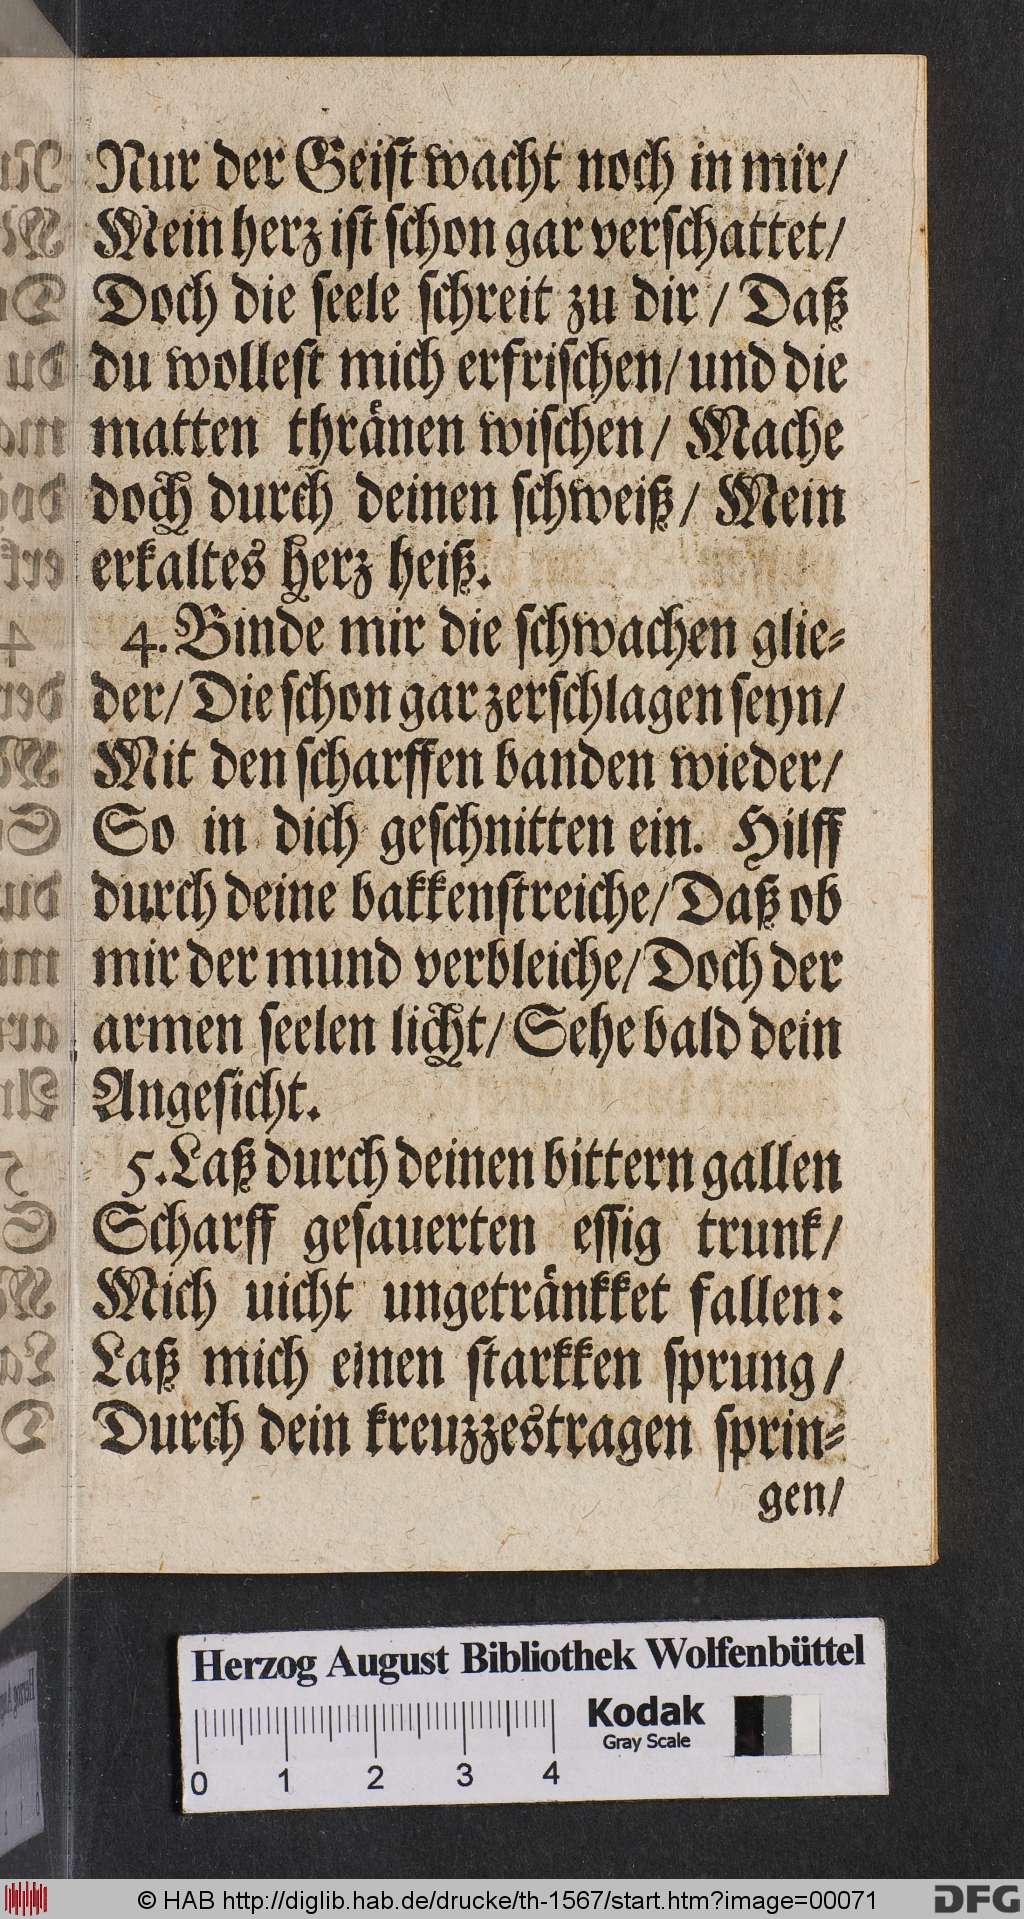 Nur der Geist wacht noch in mir/
Mein herz ist schon gar verschattet/
Doch die seele schreit zu dir / Daß
du wollest mich erfrischen/ und die
matten thränen wischen/ Mache
doch durch deinen schweiß/ Mein
erkaltes herz heiß.
4. Binde mir die schwachen glie-
der/ Die schon gar zerschlagen seyn/
Mit den scharffen banden wieder/
So in dich geschnitten ein. Hilff
durch deine bakkenstreiche/ Daß ob
mir der mund verbleiche/ Doch der
armen seelen licht/ Sehe bald dein
Angesicht.
5. Laß durch deinen bittern gallen
Scharff gesauerten essig trunk/
Mich uicht ungetränkket fallen:
Laß mich einen starkken sprung/
Durch dein kreuzzestragen sprin-
gen/
Herzog August Bibliothek Wolfenbüttel
Kodak
Gray Scale
0 1 2 3 4
© HAB http://diglib.hab.de/drucke/th-1567/start.htm?image=00071
DFG